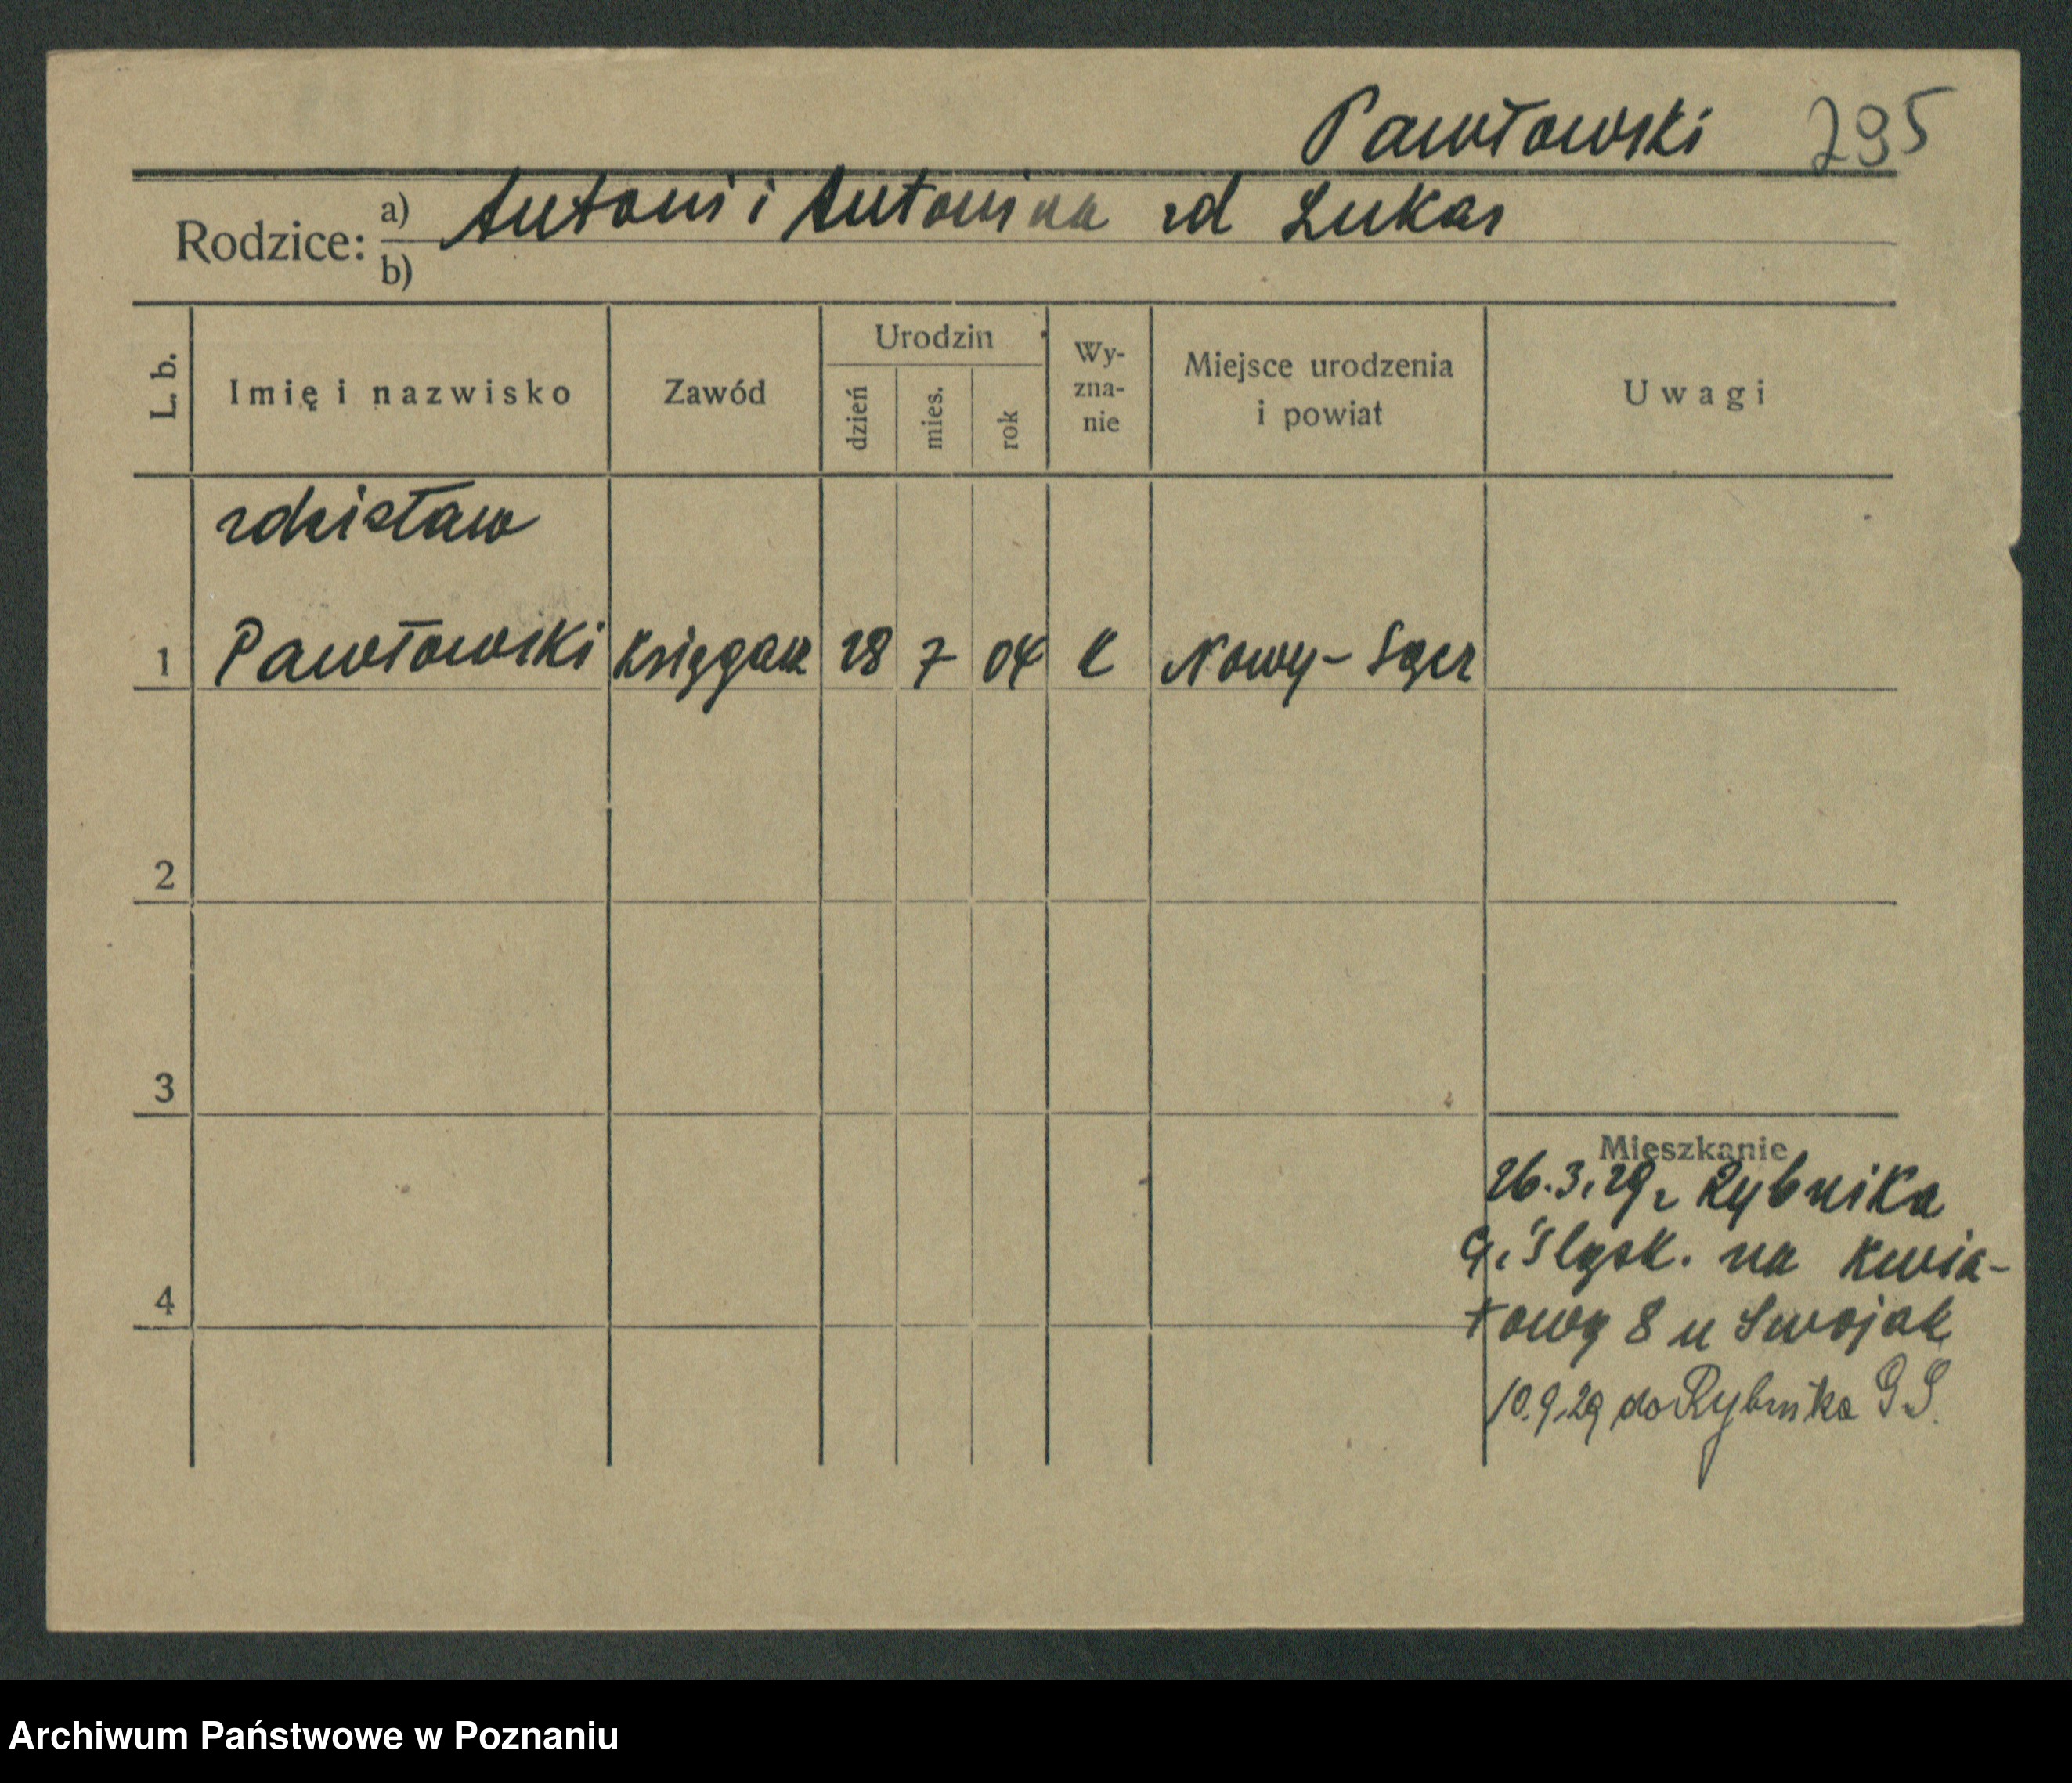 Pawłowski 295
Rodzice: a) Antoni i Antonina zd Lukas
b)
L. b.
Imię i nazwisko
Zawód
Urodzin
dzień
mies.
rok
Wy-
zna-
nie
Miejsce urodzenia
i powiat
Uwagi
Zdzisław
1 Pawłowski Księgarz 28 7 04 K Nowy-Sącz
2
3
4
Mieszkanie
26.3.29 z Rybnika
G. Śląsk. na Kwia-
tową 8 u Swojak
10.9.29 do Rybnika G.S.
Archiwum Państwowe w Poznaniu